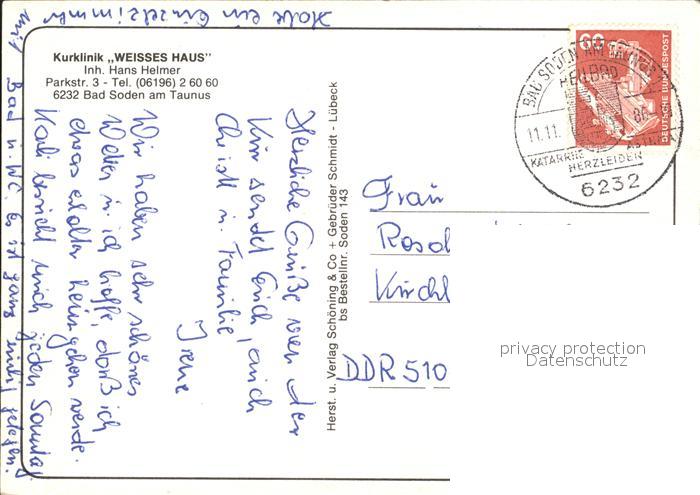 Kurklinik „WEISSES HAUS"
Inh. Hans Helmer
Parkstr. 3 - Tel. (06196) 2 60 60
6232 Bad Soden am Taunus
Herzliche Grüße von der
Kur sendet Euch, auch
Christl u. Familie,
Irene
Wir haben sehr schönes
Wetter u. ich hoffe, daß ich
etwas erholter heimgehen werde.
Karli besucht mich jeden Sonntag.
Habe ein Einzelzimmer
mit
Bad u. WC. Es ist ganz ruhig gelegen.
Herst. u. Verlag Schöning & Co + Gebrüder Schmidt - Lübeck
bs Bestellnr. Soden 143
60
DEUTSCHE BUNDESPOST
BAD SODEN AM TAUNUS
HEILBAD
11.11. 86
KATARRHE ASTHMA
HERZLEIDEN
6232
Frau
Rosal
Kirchl
DDR 510
privacy protection
Datenschutz